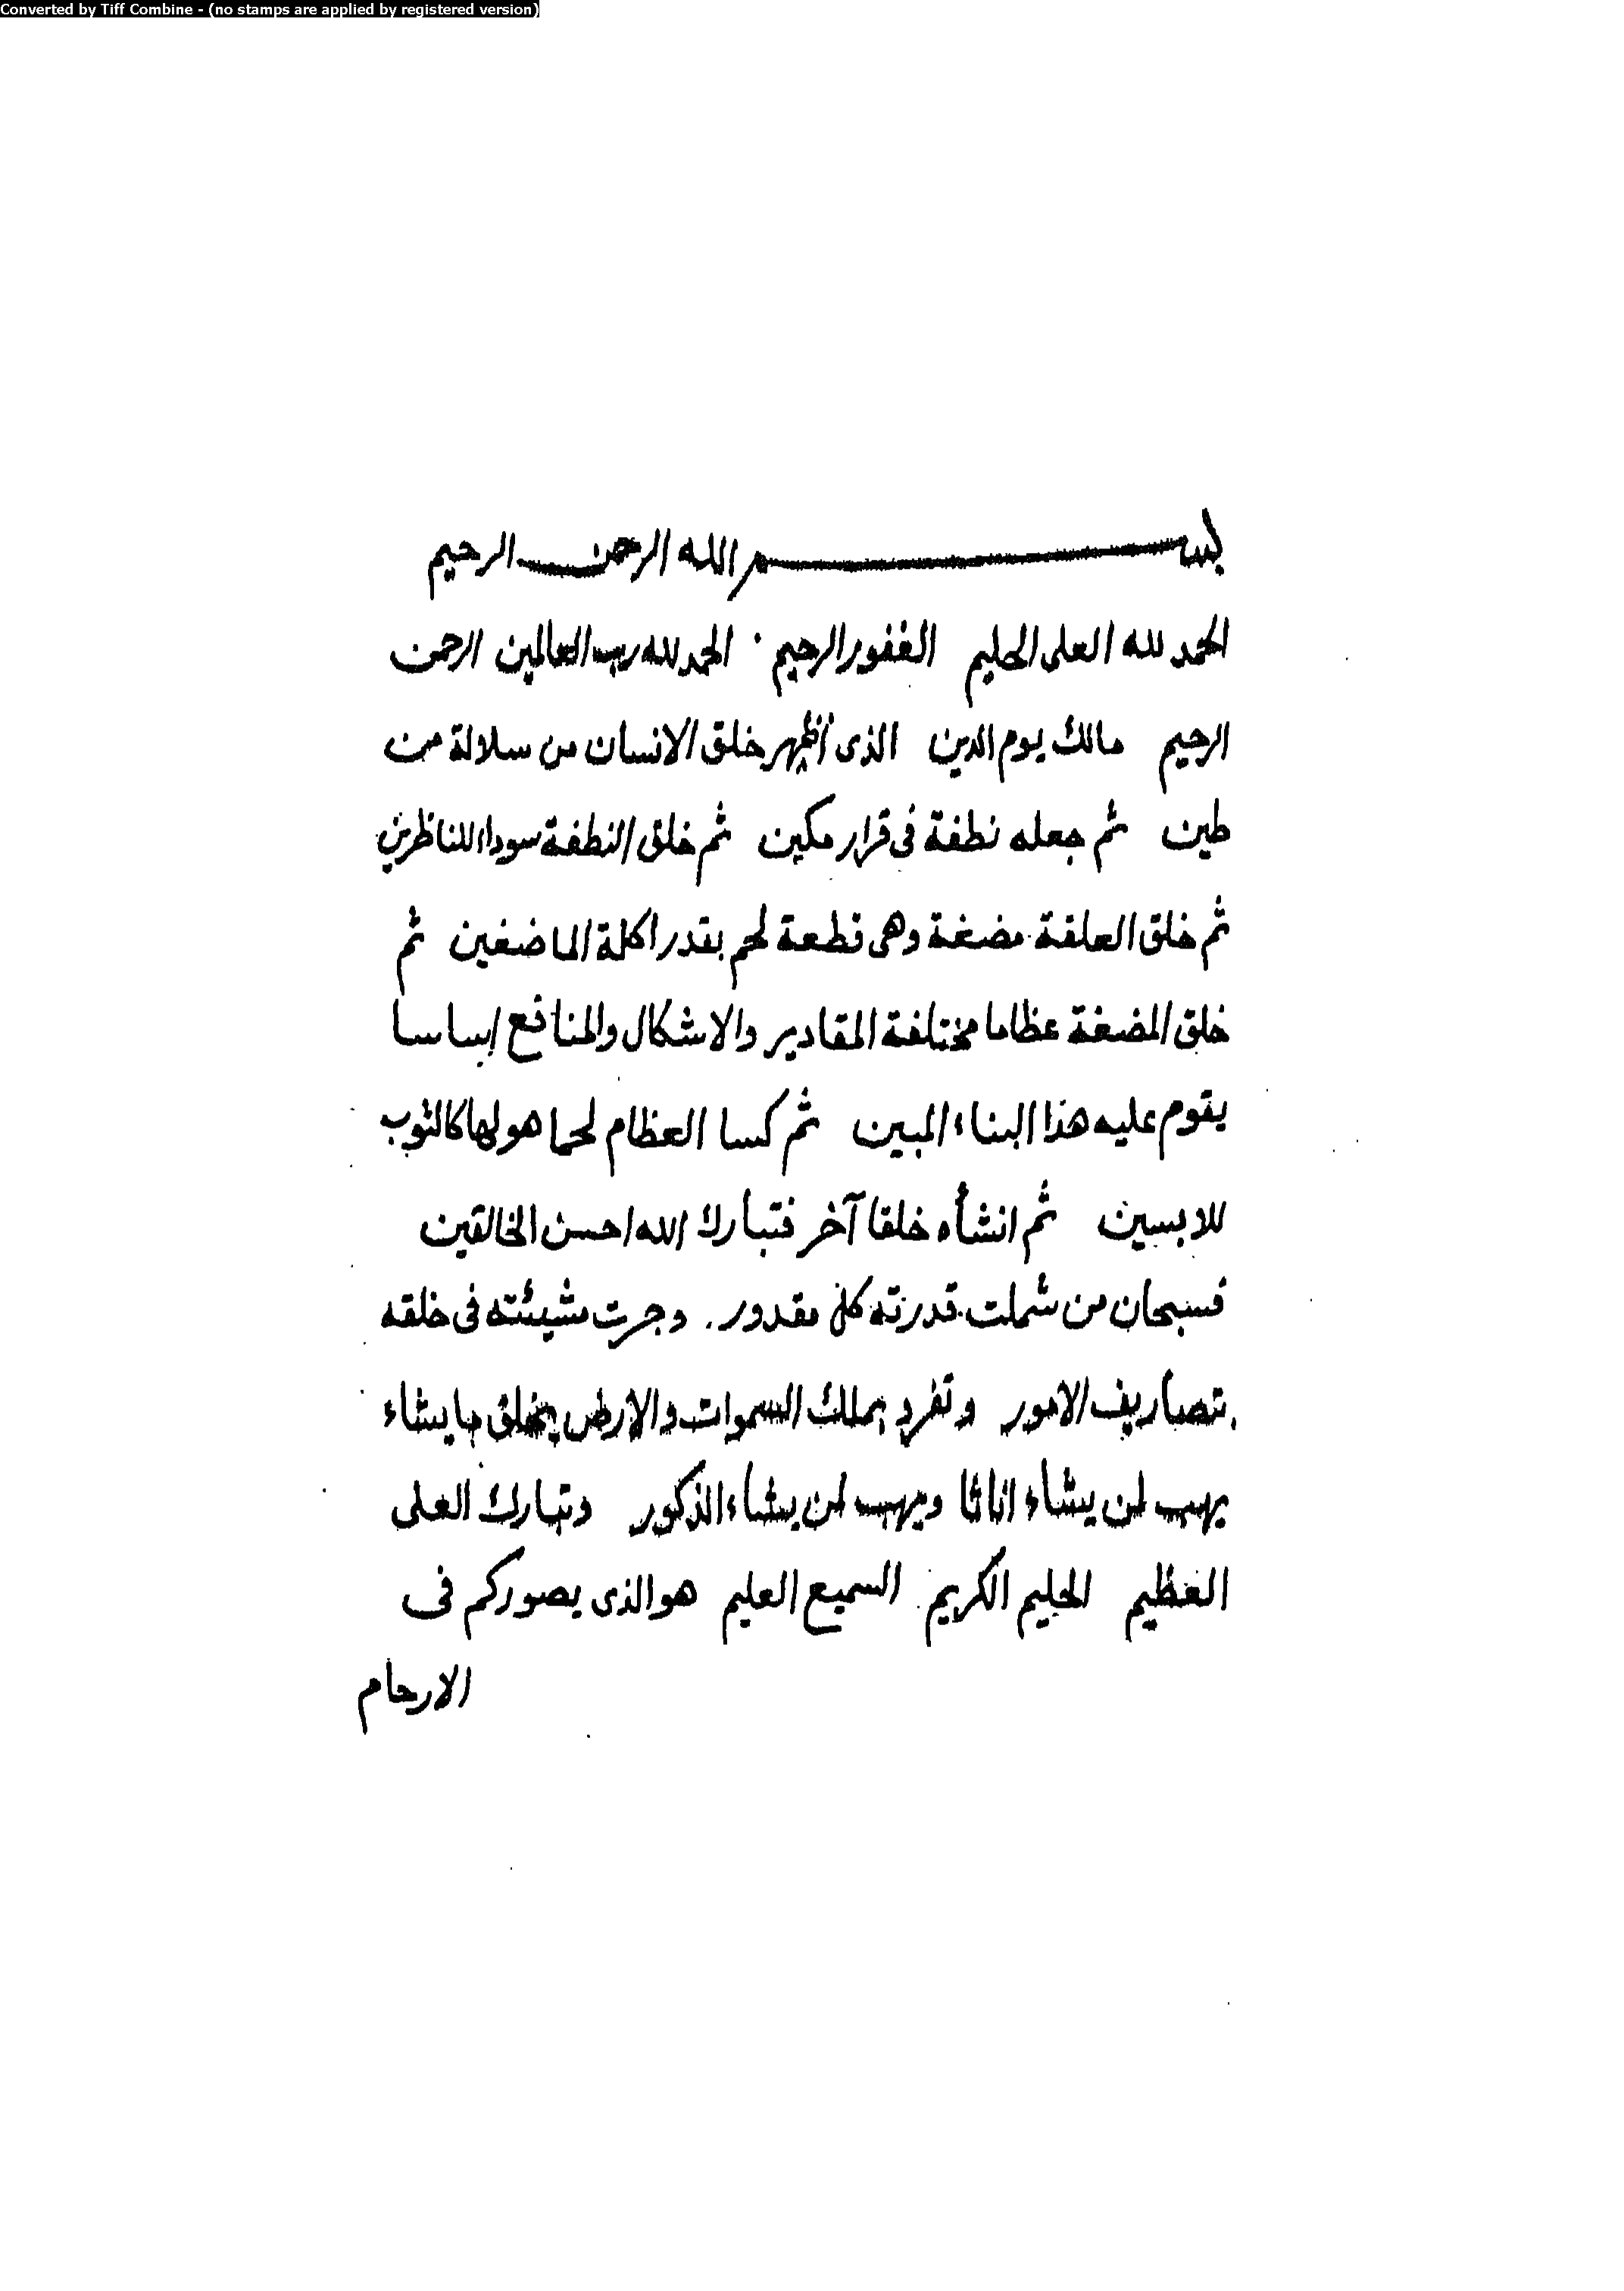 Converted by Tiff Combine - (no stamps are applied by registered version)
بسم الله الرحمن الرحيم
الحمد لله العلى الحليم الغفور الرحيم . الحمد لله رب العالمين الرحمن
الرحيم مالك يوم الدين الذى أظهر خلق الانسان من سلالة من
طين ثم جعله نطفة فى قرار مكين ثم خلق النطفة سوداء للناظرين
ثم خلق العلقة مضغة وهى قطعة لحم بقدر اكلة الماضغين ثم
خلق المضغة عظاما مختلفة المقادير والاشكال والمنافع اساسا
يقوم عليه هذا البناء المبين ثم كسا العظام لحما هو لها كالثوب
للابسين ثم انشأه خلقا آخر فتبارك الله احسن الخالقين
فسبحان من شملت قدرته كل مقدور . وجرت مشيئته فى خلقه
بتصاريف الامور وتفرد بملك السموات والارض يخلق ما يشاء
يهب لمن يشاء اناثا ويهب لمن يشاء الذكور وتبارك العلى
العظيم الحليم الكريم السميع العليم هو الذى يصوركم فى
الارحام